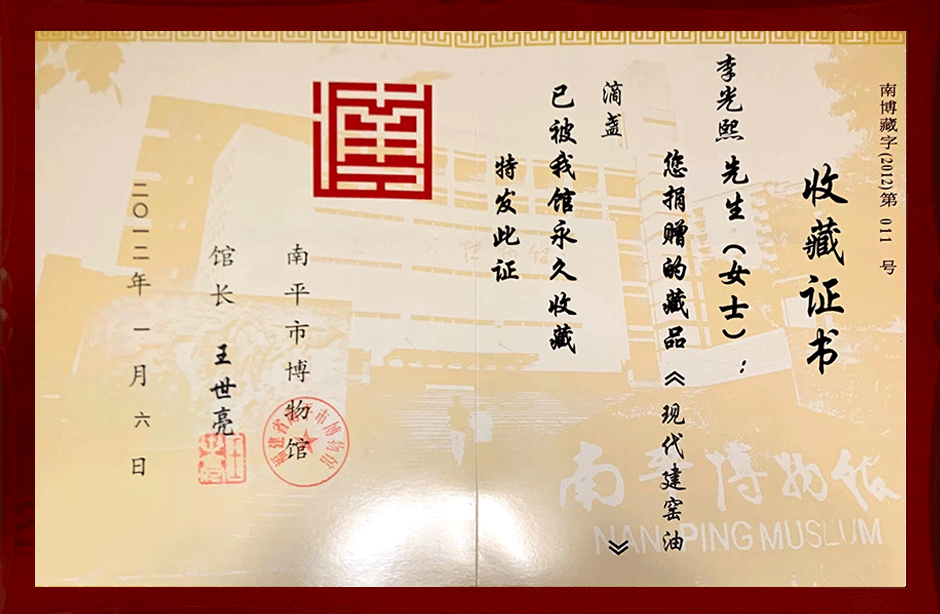 南博藏字(2012)第 011 号
收藏证书
李光熙 先生（女士）：
您捐赠的藏品《现代建窑油
滴盏》
已被我馆永久收藏
特发此证
南平市博物馆
馆长 王世亮
二〇一二年 一月 六日
福建省南平市博物馆
南平博物馆
NANPING MUSEUM